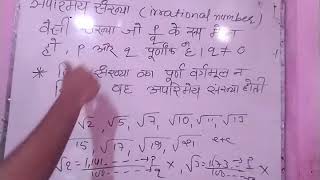 अपरिमेय संख्या (irrational number)
वैसी संख्या जो p/q के रूप में न
हो, p और q पूर्णांक है। q ≠ 0
* संख्या का पूर्ण वर्गमूल न
वह अपरिमेय संख्या होती
√2, √5, √7, √10, √11, √13
√15, √17, √19, √21 etc
√2 = 1.41 ... → p ×, √3 = 1.73 ... p ×
100 ... → q 100 ... → q